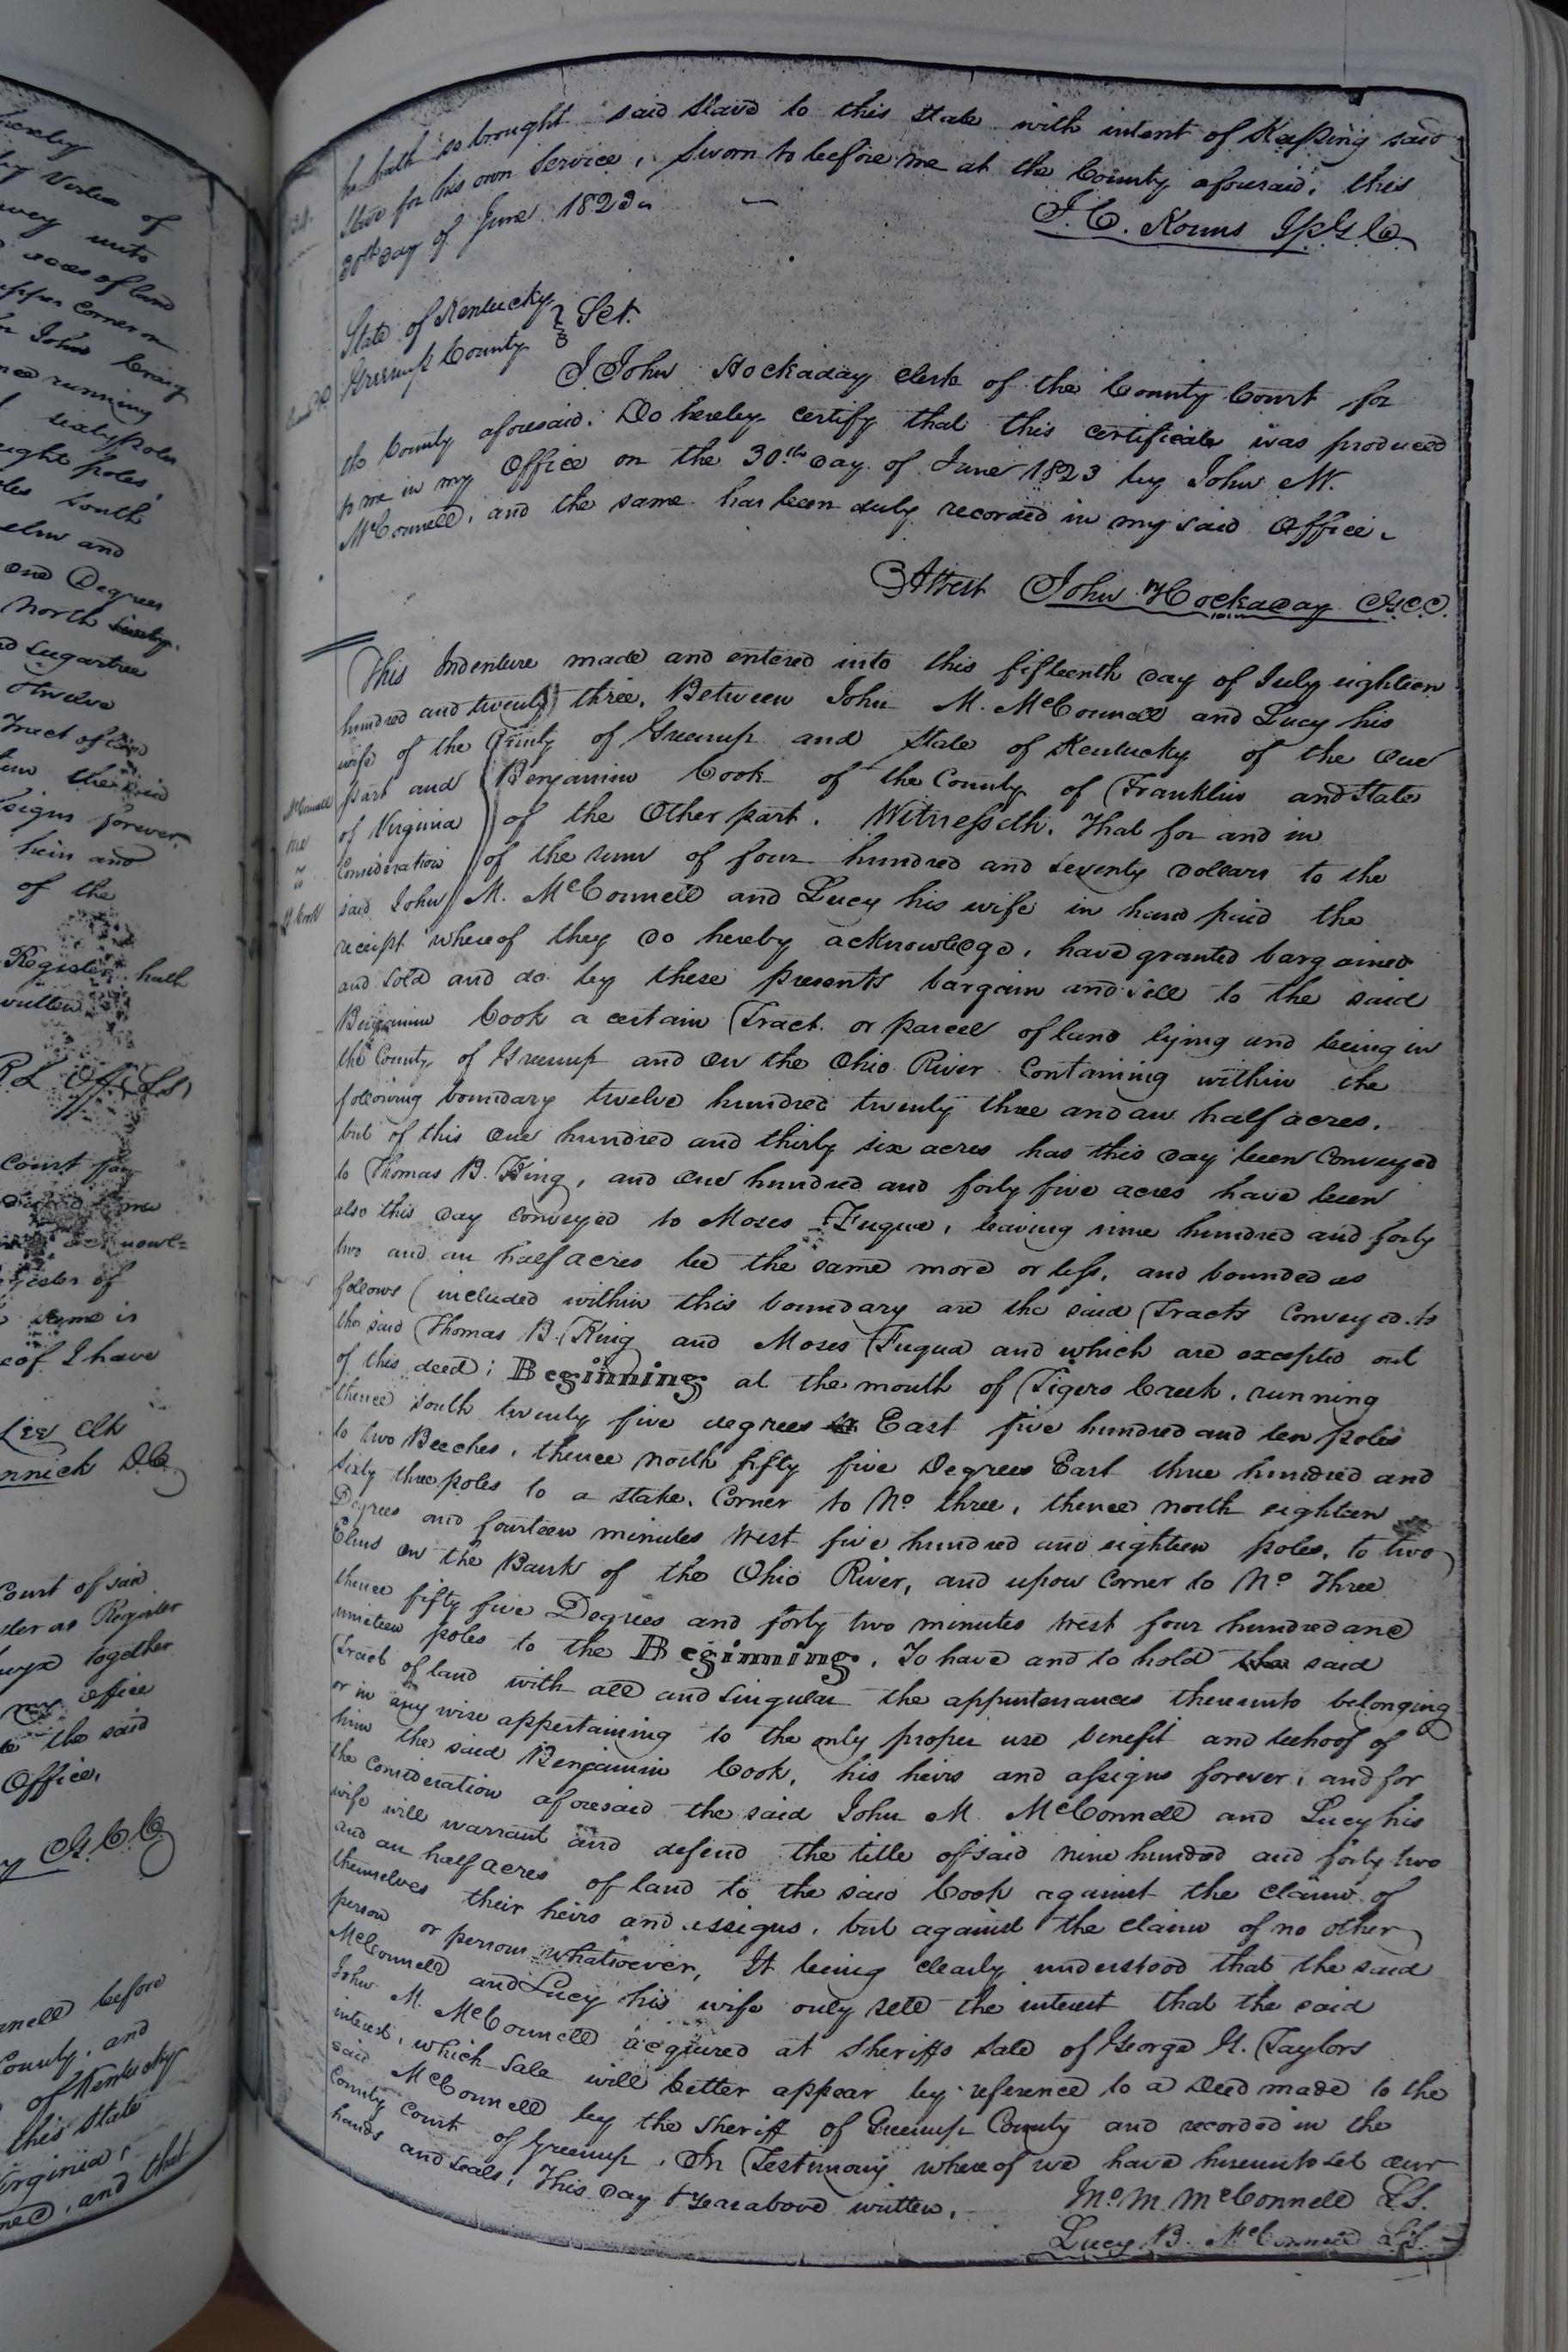 hereby
by virtue of
unto
acres of land
upper corner on
John Craig
running
sixty poles
eight poles,
south
elm and
one Degrees
North
Sugartree
twelve
Tract of land
the said
assigns forever,
heirs and
of the
Register hath
written
Court for
acknowl=
of
same is
I have
Lee Clk
D.C.
Court of said
as Register
together
my office
the said
Office.
G.C.C.
before
County, and
of Kentucky
this State
Virginia,
and that
he hath so brought said Slave to this State with intent of Keeping said
Slave for his own Service, Sworn to before me at the County aforesaid, this
30th Day of June 1823.
J. C. Kouns JPGC
State of Kentucky
Greenup County } Sct.
I John Hockaday clerk of the County Court for
the County aforesaid. Do hereby certify that this certificate was produced
to me in my Office on the 30th Day of June 1823 by John M.
McConnell, and the same has been duly recorded in my said Office.
Attest John Hockaday G.C.C.
This Indenture made and entered into this fifteenth day of July eighteen
hundred and twenty three, Between John M. McConnell and Lucy his
wife of the County of Greenup and State of Kentucky of the one
part and Benjamin Cook of the County of Franklin and State
of Virginia of the Other part. Witnesseth. That for and in
Consideration of the sum of four hundred and seventy dollars to the
said John M. McConnell and Lucy his wife in hand paid the
receipt whereof they do hereby acknowledge, have granted bargained
and sold and do by these presents bargain and sell to the said
Benjamin Cook a certain Tract or parcel of land lying and being in
the County of Greenup and on the Ohio River Containing within the
following boundary twelve hundred twenty three and an half acres.
but of this one hundred and thirty six acres has this day been Conveyed
to Thomas B. King, and one hundred and forty five acres have been
also this day conveyed to Moses Fuqua, leaving nine hundred and forty
two and an half acres be the same more or less, and bounded as
follows (included within this boundary are the said Tracts Conveyed to
the said Thomas B. King and Moses Fuqua and which are excepted out
of this deed; Beginning at the mouth of Tigers Creek, running
thence south twenty five degrees East five hundred and ten poles
to two Beeches, thence north fifty five Degrees East three hundred and
sixty three poles to a stake, Corner to No three, thence north eighteen
Degrees and fourteen minutes West five hundred and eighteen poles, to two
Elms on the Bank of the Ohio River, and upon Corner to No Three
thence fifty five Degrees and forty two minutes West four hundred and
nineteen poles to the Beginning. To have and to hold the said
Tract of land with all and singular the appurtenances thereunto belonging
or in any wise appertaining to the only proper use benefit and behoof of
him the said Benjamin Cook, his heirs and assigns forever, and for
the Consideration aforesaid the said John M. McConnell and Lucy his
wife will warrant and defend the title of said nine hundred and forty two
and an half acres of land to the said Cook against the claims of
themselves their heirs and assigns, but against the claims of no other
person or persons whatsoever, It being clearly understood that the said
McConnell and Lucy his wife only sell the interest that the said
John M. McConnell acquired at Sheriffs Sale of George G. Taylors
interest, which Sale will better appear by reference to a Deed made to the
said McConnell by the Sheriff of Greenup County and recorded in the
County Court of Greenup. In Testimony whereof we have hereunto set our
hands and seals, This day & year above written.
Jno M. McConnell LS.
Lucy B. McConnell LS.